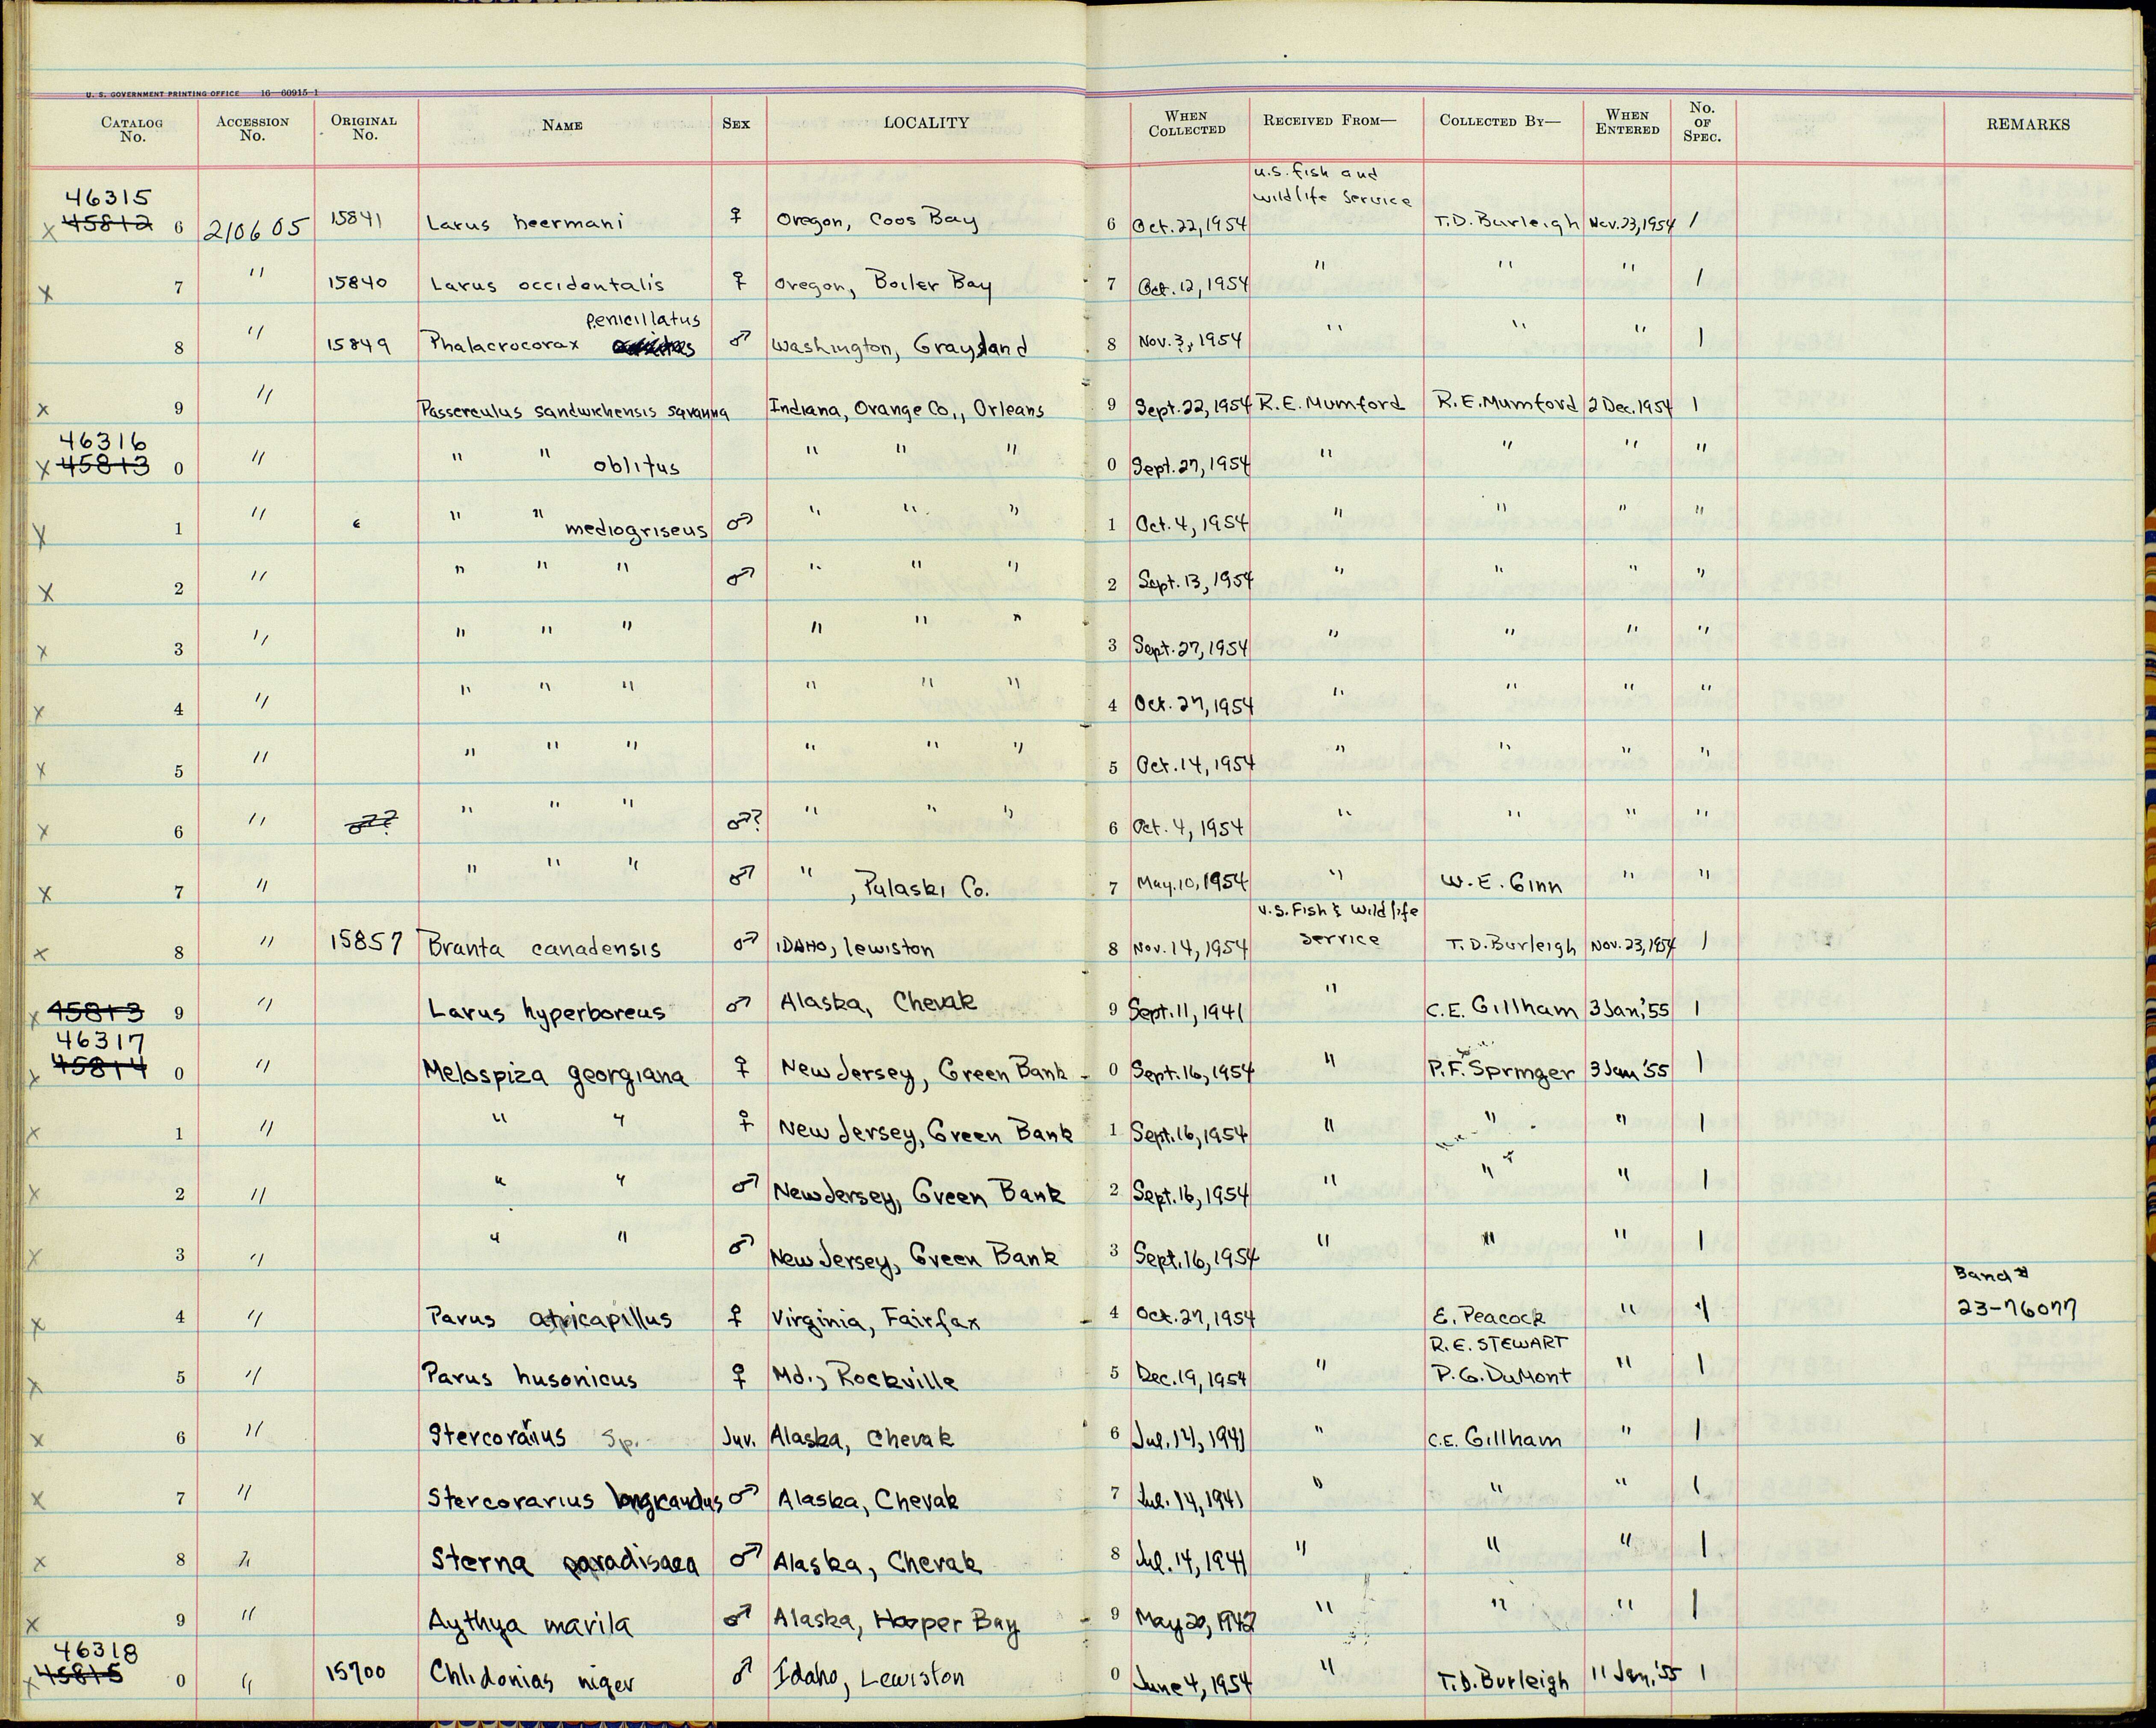 U. S. GOVERNMENT PRINTING OFFICE 16—60915-1
CATALOG No. ACCESSION No. ORIGINAL No. NAME SEX LOCALITY WHEN COLLECTED RECEIVED FROM— COLLECTED BY— WHEN ENTERED No. OF SPEC. REMARKS
46315 U.S. Fish and Wildlife Service
x 45812 6 210605 15841 Larus heermani ♀ Oregon, Coos Bay 6 Oct. 22, 1954 T.D. Burleigh Nov. 23, 1954 1
x 7 " 15840 Larus occidentalis ♀ Oregon, Boiler Bay 7 Oct. 12, 1954 " " " 1
penicillatus
8 " 15849 Phalacrocorax ♂ Washington, Grayland 8 Nov. 3, 1954 " " " 1
x 9 " Passerculus sandwichensis savanna Indiana, Orange Co., Orleans 9 Sept. 22, 1954 R.E. Mumford R.E. Mumford 2 Dec. 1954 1
46316
x 45813 0 " " " oblitus " " " 0 Sept. 27, 1954 " " " "
x 1 " " " mediogriseus ♂ " " " 1 Oct. 4, 1954 " " " "
x 2 " " " " ♂ " " " 2 Sept. 13, 1954 " " " "
x 3 " " " " " " " 3 Sept. 27, 1954 " " " "
x 4 " " " " " " " 4 Oct. 27, 1954 " " " "
x 5 " " " " " " " 5 Oct. 14, 1954 " " " "
x 6 " ♂? " " " ♂? " " " 6 Oct. 4, 1954 " " " "
x 7 " " " " ♂ " , Pulaski Co. 7 May. 10, 1954 " W. E. Ginn " "
U.S. Fish & Wildlife Service
x 8 " 15857 Branta canadensis ♂ IDAHO, Lewiston 8 Nov. 14, 1954 T. D. Burleigh Nov. 23, 1954 1
x 45813 9 " Larus hyperboreus ♂ Alaska, Chevak 9 Sept. 11, 1941 " C.E. Gillham 3 Jan. '55 1
46317
x 45814 0 " Melospiza georgiana ♀ New Jersey, Green Bank 0 Sept. 16, 1954 " P.F. Springer 3 Jan '55 1
x 1 " " " ♀ New Jersey, Green Bank 1 Sept. 16, 1954 " " " 1
x 2 " " " ♂ New Jersey, Green Bank 2 Sept. 16, 1954 " " " 1
x 3 " " " ♂ New Jersey, Green Bank 3 Sept. 16, 1954 " " " 1
Band #
x 4 " Parus atricapillus ♀ Virginia, Fairfax 4 Oct. 27, 1954 E. Peacock " 1 23-76077
R.E. STEWART
x 5 " Parus husonicus ♀ Md., Rockville 5 Dec. 19, 1954 " P.G. DuMont " 1
x 6 " Stercorarius Sp. Juv. Alaska, Chevak 6 Jul. 14, 1941 " C.E. Gillham " 1
x 7 " Stercorarius longicaudus ♂ Alaska, Chevak 7 Jul. 14, 1941 " " " 1
x 8 " Sterna paradisaea ♂ Alaska, Chevak 8 Jul. 14, 1941 " " " 1
x 9 " Aythya marila ♂ Alaska, Hooper Bay 9 May 20, 1942 " " " 1
46318
x 45815 0 " 15700 Chlidonias niger ♂ Idaho, Lewiston 0 June 4, 1954 " T.D. Burleigh 11 Jan. '55 1